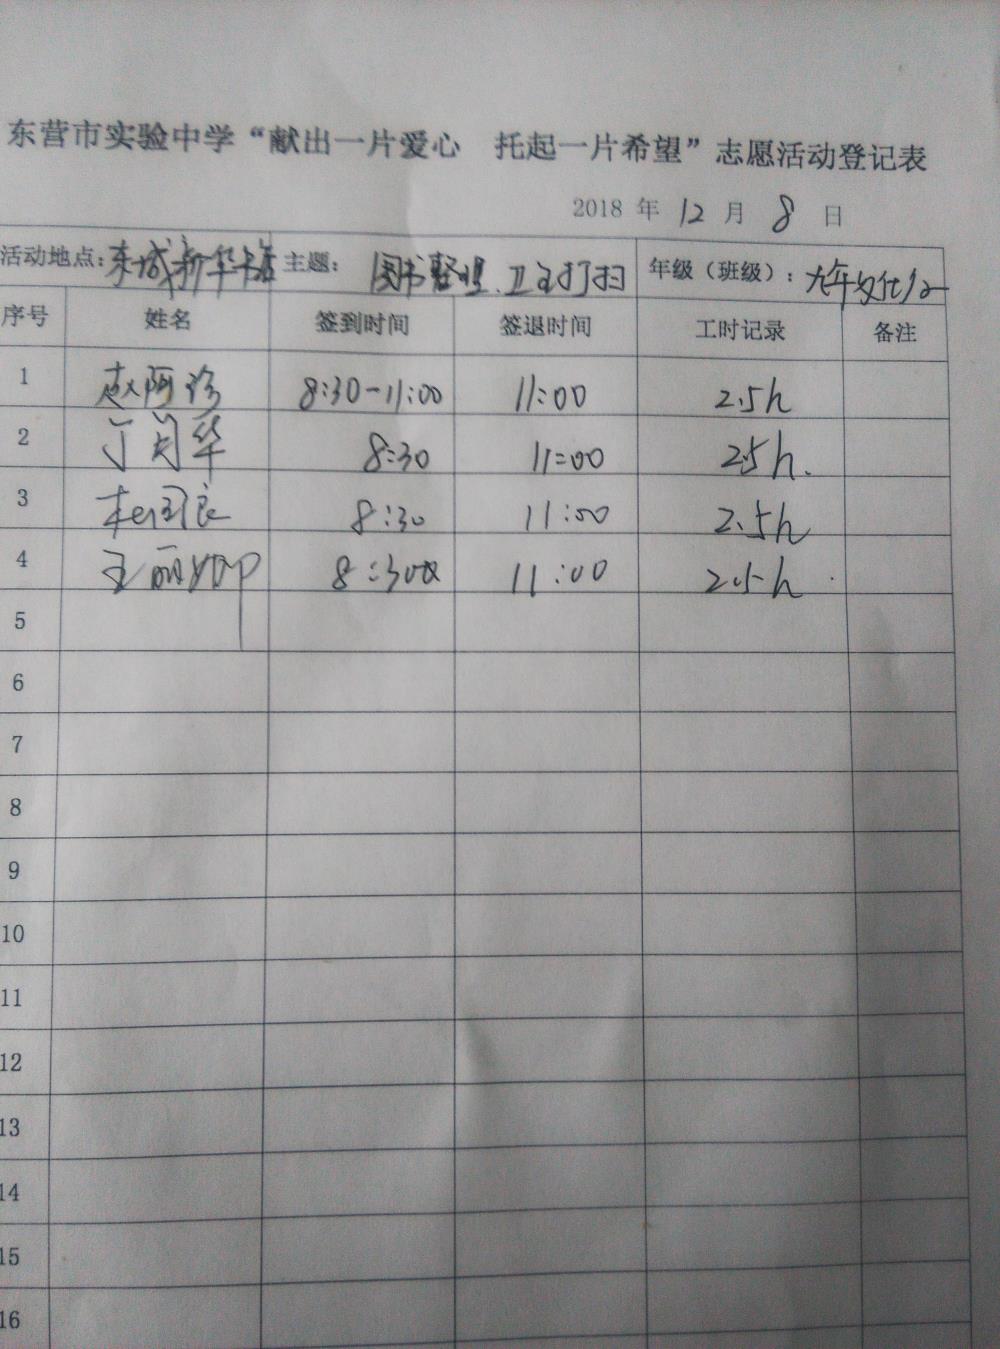 东营市实验中学“献出一片爱心 托起一片希望”志愿活动登记表
2018 年 12 月 8 日
活动地点：东城新华书店 主题： 图书整理.卫生打扫 年级（班级）：
序号 姓名 签到时间 签退时间 工时记录 备注
1 赵阿珍 8:30-11:00 11:00 2.5h
2 丁兰华 8:30 11:00 2.5h.
3 杜国良 8:30 11:00 2.5h
4 王丽 8:30 11:00 2.5h
5
6
7
8
9
10
11
12
13
14
15
16